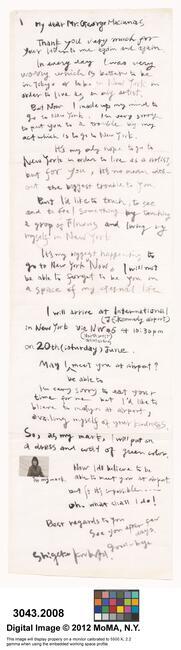 My dear Mr. George Maciunas
Thank you very much for
your to me again and again.
In every day I was very
worry which is better to be
in Tokyo or to be in New York in
order to live by an artist.
But Now I made up my mind to
go to New York. I'm very sorry
to put you to a trouble by my
act which is to go to New York.
It's my only hope to go to
New York in order to live as an artist,
but for you, it's no mean with-
out the biggest trouble to You.
But I'd like to touch, to see
and to feel something by touching
a group of Fluxus and living by
myself in New York
It's my biggest happening to
go to New York Now, I will not
be able to forget to be you in
a space of my eternal life.
I will arrive at International
(J.F. Kennedy airport)
in New York via NW at 10:30pm
(Northwest)
on 20th (Saturday) June.
May I meet you at airport?
be able to
I'm very sorry to eat your
time for me but I'd like to
believe to you at airport,
of your kindness.
So, as my mark, I will put on
a dress and coat of green color,
to my mark.
Now I'd believe to be
able to meet you at airport
but if it's impossible
oh, what shall I do!
Best regards to you
See you after few
days.
Good-bye
Shigeko Kubota
3043.2008
Digital Image © 2012 MoMA, N.Y.
This image will display properly on a monitor calibrated to 6500 K, 2.2
gamma when using the embedded working space profile